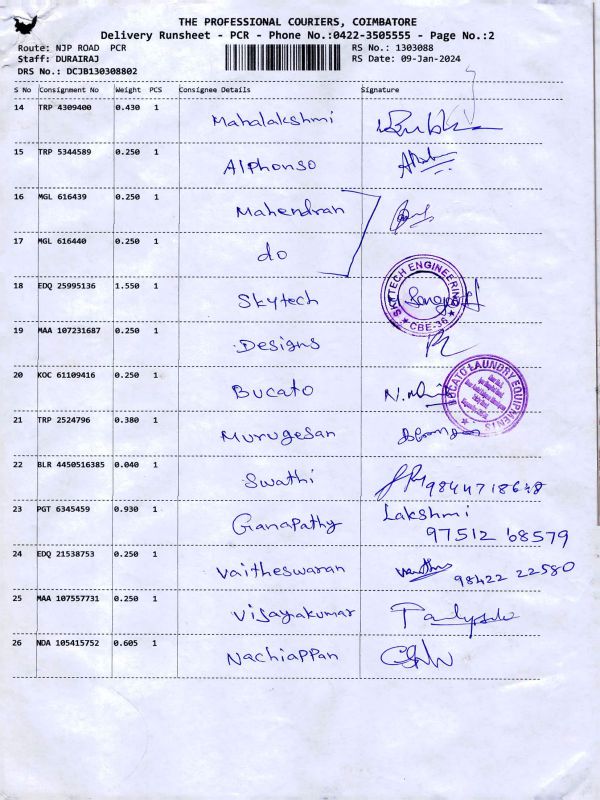 THE PROFESSIONAL COURIERS, COIMBATORE
Delivery Runsheet - PCR - Phone No.:0422-3505555 - Page No.:2
Route: NJP ROAD PCR RS No.: 1303088
Staff: DURAIRAJ RS Date: 09-Jan-2024
DRS No.: DCJB130308802
S No Consignment No Weight PCS Consignee Details Signature
14 TRP 4309400 0.430 1 Mahalakshmi
15 TRP 5344589 0.250 1 Alphonso
16 MGL 616439 0.250 1 Mahendran
17 MGL 616440 0.250 1 do
18 EDQ 25995136 1.550 1 Skytech
SKYTECH ENGINEERING
* CBE-36 *
19 MAA 107231687 0.250 1 Designs
20 KOC 61109416 0.250 1 Bucato
BUCATO LAUNDRY EQUIPMENTS
21 TRP 2524796 0.380 1 Murugesan
22 BLR 4450516385 0.040 1 Swathi 9844718648
23 PGT 6345459 0.930 1 Ganapathy Lakshmi
97512 68579
24 EDQ 21538753 0.250 1 Vaitheswaran 98422 22580
25 MAA 107557731 0.250 1 Vijayakumar
26 NDA 105415752 0.605 1 Nachiappan